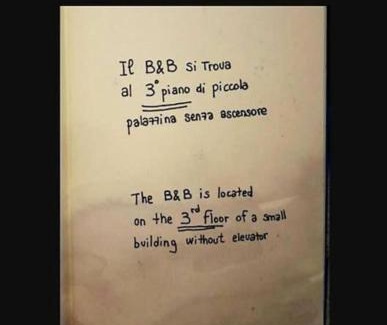 Il B&B si Trova
al 3° piano di piccola
palazzina senza ascensore
The B&B is located
on the 3rd floor of a small
building without elevator